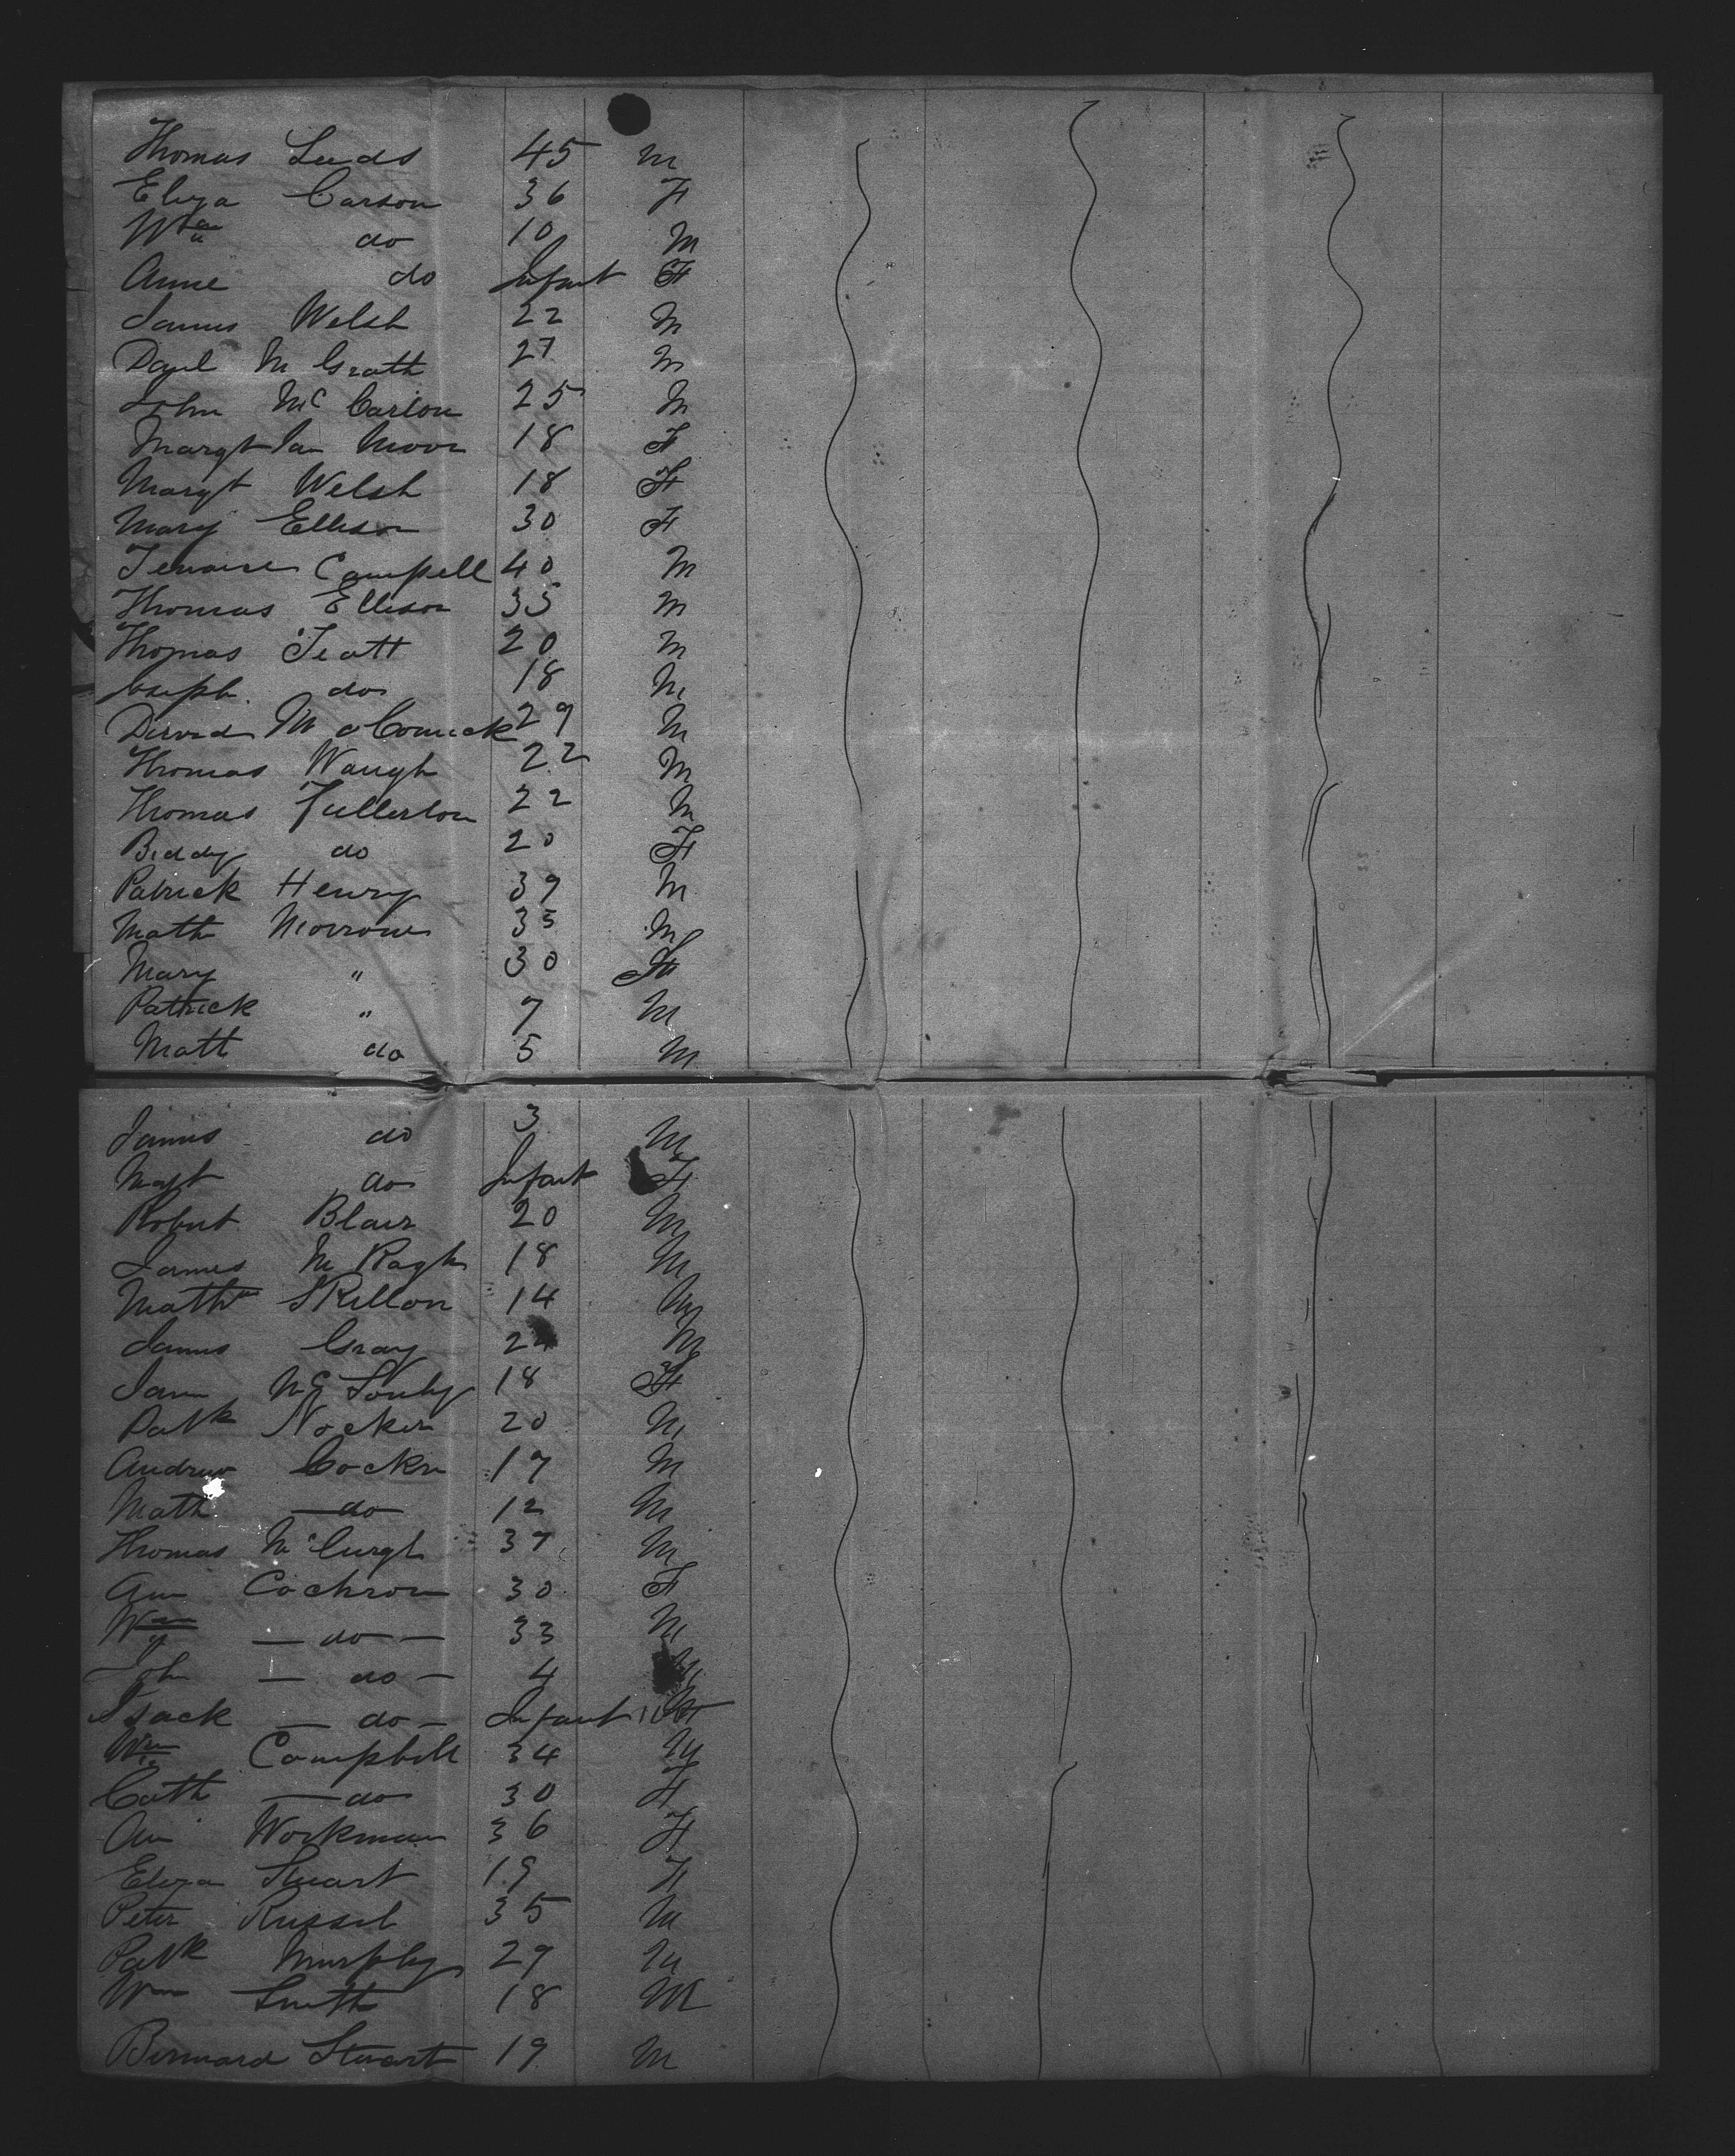 Thomas Leeds 45 M
Eliza Carson 36 F
Wm do 10 M
Anne do Infant F
James Welsh 22 M
Danl Mc Grath 27 M
John Mc Carlon 25 M
Margt Jan Moor 18 F
Margt Welsh 18 F
Mary Ellison 30 F
Campell 40 M
Thomas Ellison 35 M
Thomas Teatt 20 M
Joseph do 18 M
David Mc Comick 29 M
Thomas Waugh 22 M
Thomas Fullerton 22 M
Biddy do 20 F
Patrick Henry 39 M
Math Morrow 35 M
Mary " 30 F
Patrick " 7 M
Matt do 5 M
James do 3 M
Magt do Infant F
Robert Blair 20 M
James Mc Kagh 18 M
Mathw Skillon 14 M
James Gray 24 M
Jan Mc 18 F
Patk Nocker 20 M
Andrew Cockrn 17 M
Math do 12 M
Thomas McCurgh 37 M
Ann Cochron 30 F
Wm do 33 M
John do 4 M
Isack do Infant
Wm Campbell 34 M
Cath do 30 F
Ann Workman 36 F
Eliza Stuart 19 F
Peter Russel 35 M
Patk Murphy 29 M
Wm Smith 18 M
Bernard Stuart 19 M